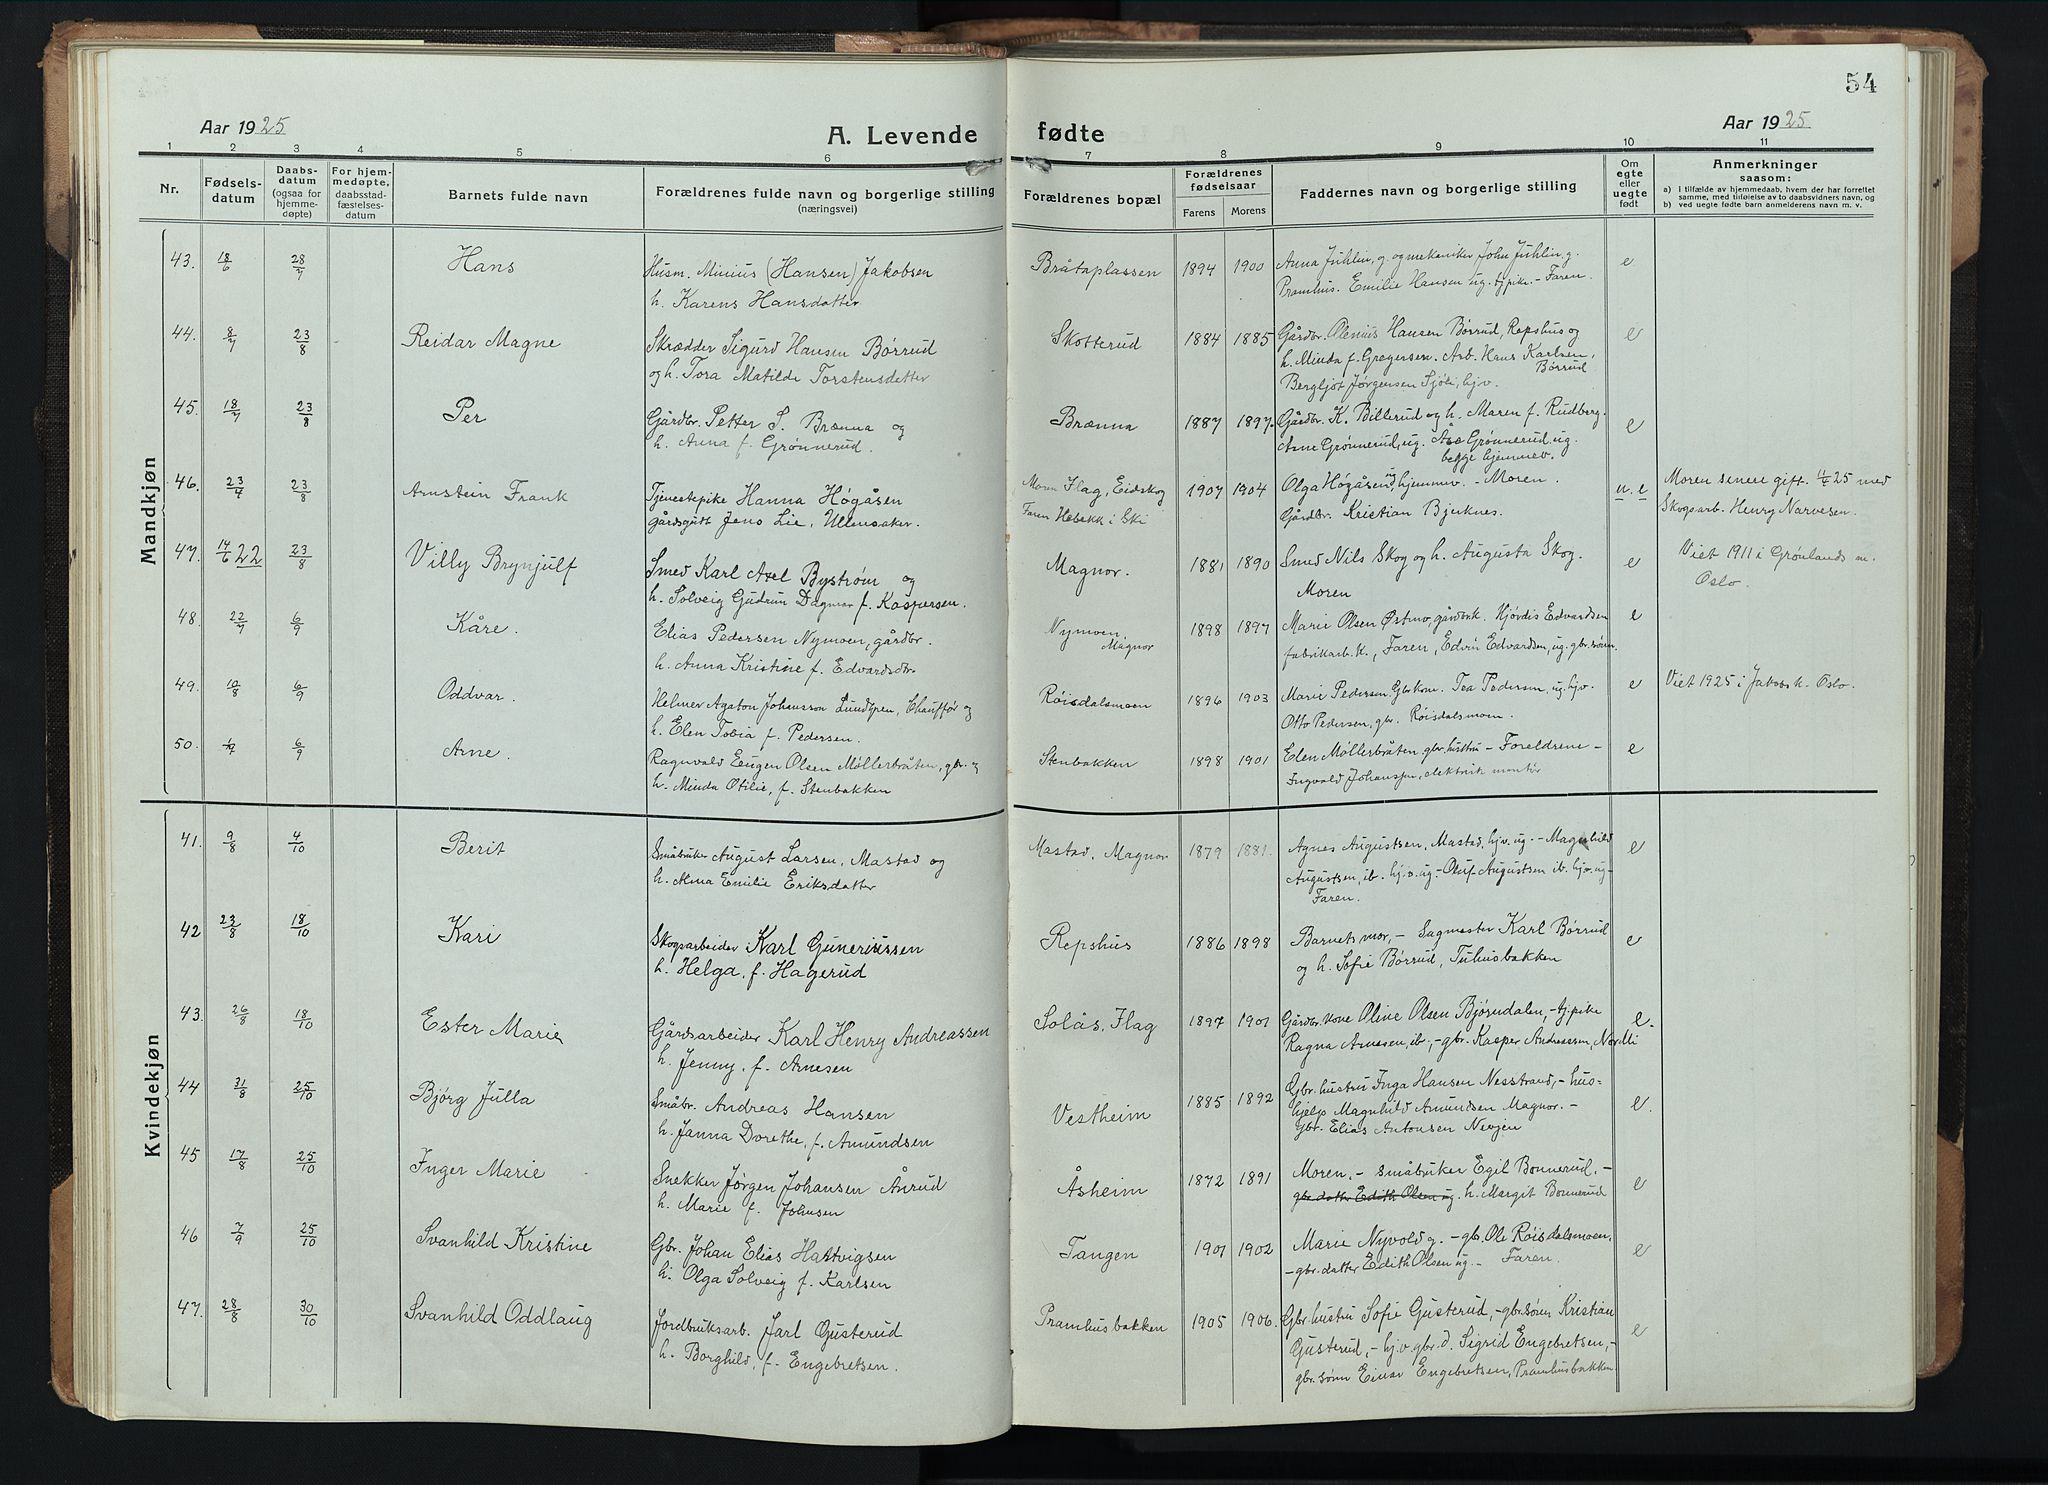 54
Aar 1925
A. Levende fødte
Aar 1925
1 2 3 4 5 6 7 8 9 10 11
Nr.
Fødsels-
datum
Daabs-
datum
(ogsaa for
hjemme-
døpte)
For hjem-
medøpte,
daabsstad-
fæstelses-
datum
Barnets fulde navn
Forældrenes fulde navn og borgerlige stilling
(næringsvei)
Forældrenes bopæl
Forældrenes
fødselsaar
Farens Morens
Faddernes navn og borgerlige stilling
Om
egte
eller
uegte
født
Anmerkninger
saasom:
a) i tilfælde av hjemmedaab, hvem der har forrettet
samme, med tilføielse av to daabsvidners navn, og
b) ved uegte fødte barn anmelderens navn m. v.
Mandkjøn
43. 18/6 28/7 Hans Husm. Minius (Hansen) Jakobsen Bråtaplassen 1894 1900 Anna Juhlin, g. og mekaniker John Juhlin g. e
h. Karens Hansdatter Pramhus. Emilie Hansen ug. tj.pike. - Faren.
44. 8/7 23/8 Reidar Magne Skrædder Sigurd Hansen Børrud Skotterud 1884 1885 Gårdbr. Olenius Hansen Børrud, Repshus og e
og h. Tora Matilde Torstensdatter h. Minda f. Gregersen. Arb. Hans Karlsen,
Børrud
Bergljot Jørgensen Sjöli, hjv.
45. 18/7 23/8 Per Gårdbr. Petter S. Brænna og Brænna 1887 1897. Gårdbr. K. Billerud og h. Maren f. Rudberg. e
h. Anna f. Grønnerud. Arne Grønnerud, ug. Åse Grønnerud ug.
begge hjemmev.
46. 23/7 23/8 Arnstein Frank Tjenestepike Hanna Høgåsen Moren Flag, Eidskog 1907 1904 Olga Høgåsen ug hjemmv. - Moren. u. e Moren senere gift 11/25 med
gårdsgutt Jens Lie, Ullensaker. Faren Hebekk i Ski Gårdbr. Kristian Bjerknes. Skogsarb. Henry Narvesen.
47. 14/6 22 23/8 Villy Brynjulf Smed Karl Axel Byström og Magnor. 1881 1890 Smed Nils Skog og h. Augusta Skog. e Viet 1911 i Grønlands m.
h. Solveig Gudrun Dagmar f. Kaspersen. Moren Oslo.
48. 22/7 6/9 Kåre. Elias Pedersen Nymoen, gårdbr. Nymoen, 1898 1897 Marie Olsen Østmo, gårdbrk. Hjördis Edvardsen e
h. Anna Kristine f. Edvardsdtr Magnor fabrikarb. k., Faren, Edvin Edvardsen, ug. gbr.sønn.
49. 10/8 6/9 Oddvar. Helmer Agaton Johansson Lundgren, Chauffør og Røisdalsmoen 1896 1903 Marie Pedersen Gbrkone. Tea Pedersen, ug. hjv. e Viet 1925 i Jakobsk. Oslo.
h. Elen Tobia f. Pedersen. Otto Pedersen, gbr. Røisdalsmoen.
50. 6/9 Arne. Ragnvald Eugen Olsen Møllerbråten, gbr. og Stenbakken 1898 1901 Elen Møllerbråten gbr. hustru - Foreldrene - e
h. Minda Otilie, f. Stenbakken Ingvald Johansen, elektrisk montør
Kvindekjøn
41. 9/8 4/10 Berit Småbruker August Larsen, Mastad og Mastad, Magnor 1879 1881. Agnes Augustsen, Mastad, hj.v. ug. - Magnhild e
h. Alma Emilie Eriksdatter Augustsen, ib. hj.v. ug. - Oluf Augustsen ib. hjv. ug. -
Faren.
42 23/8 18/10 Kari Skogsarbeider Karl Gunerius​sen Repshus 1886 1898 Barnets mor, - Sagmester Karl Børrud e
h. Helga, f. Hagerud og h. Sofie Børrud, Tuhusbakken
43. 26/8 18/10 Ester Marie Gårdsarbeider Karl Henry Andreassen Solås, Flag 1897 1901 Gårdbr. kone Oline Olsen Bjørndalen, - tj.pike e.
h. Jenny, f. Arnesen Ragna Arnesen, ib., - gbr. Kasper Andreassen, Nordli
44 31/8 25/10 Bjørg Julla Småbr. Andreas Hansen Vestheim 1885 1892 Gbr. hustru Inga Hansen Nesstrand, - hus- e.
h. Janna Dorethe, f. Amundsen hjelp Magnhild Amundsen Magnor. -
Gbr. Elias Antonsen Nevjen
45 17/8 25/10 Inger Marie Snekker Jørgen Johansen Åsrud Åsheim 1872 1891 Moren, - småbruker Egil Bonnerud, - e
h. Marie f. Johnsen gbr datter Edith Olsen ug. h. Margit Bonnerud
46 7/9 25/10 Svanhild Kristine Gbr. Johan Elias Hartvigsen Tangen 1901 1902 Marie Nyvold g. - gbr. Ole Røisdalsmoen, e
h. Olga Solveig f. Karlsen - gbr. datter Edith Olsen ug. - Faren.
47. 28/8 30/10 Svanhild Oddlaug Jordbruksarb. Jarl Gusterud Pramhusbakken 1905 1906. Gbr. hustru Sofie Gusterud, - gbr.sønn Kristian e
h. Borghild, f. Engebretsen. Gusterud, - hj.v gbr. d. Sigrid Engebretsen, -
gbr. sønn Einar Engebretsen, Pramhusbakken.